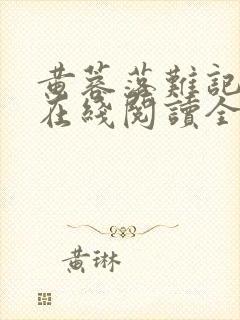 黄蓉落難記
在綫閱讀全
黄琳